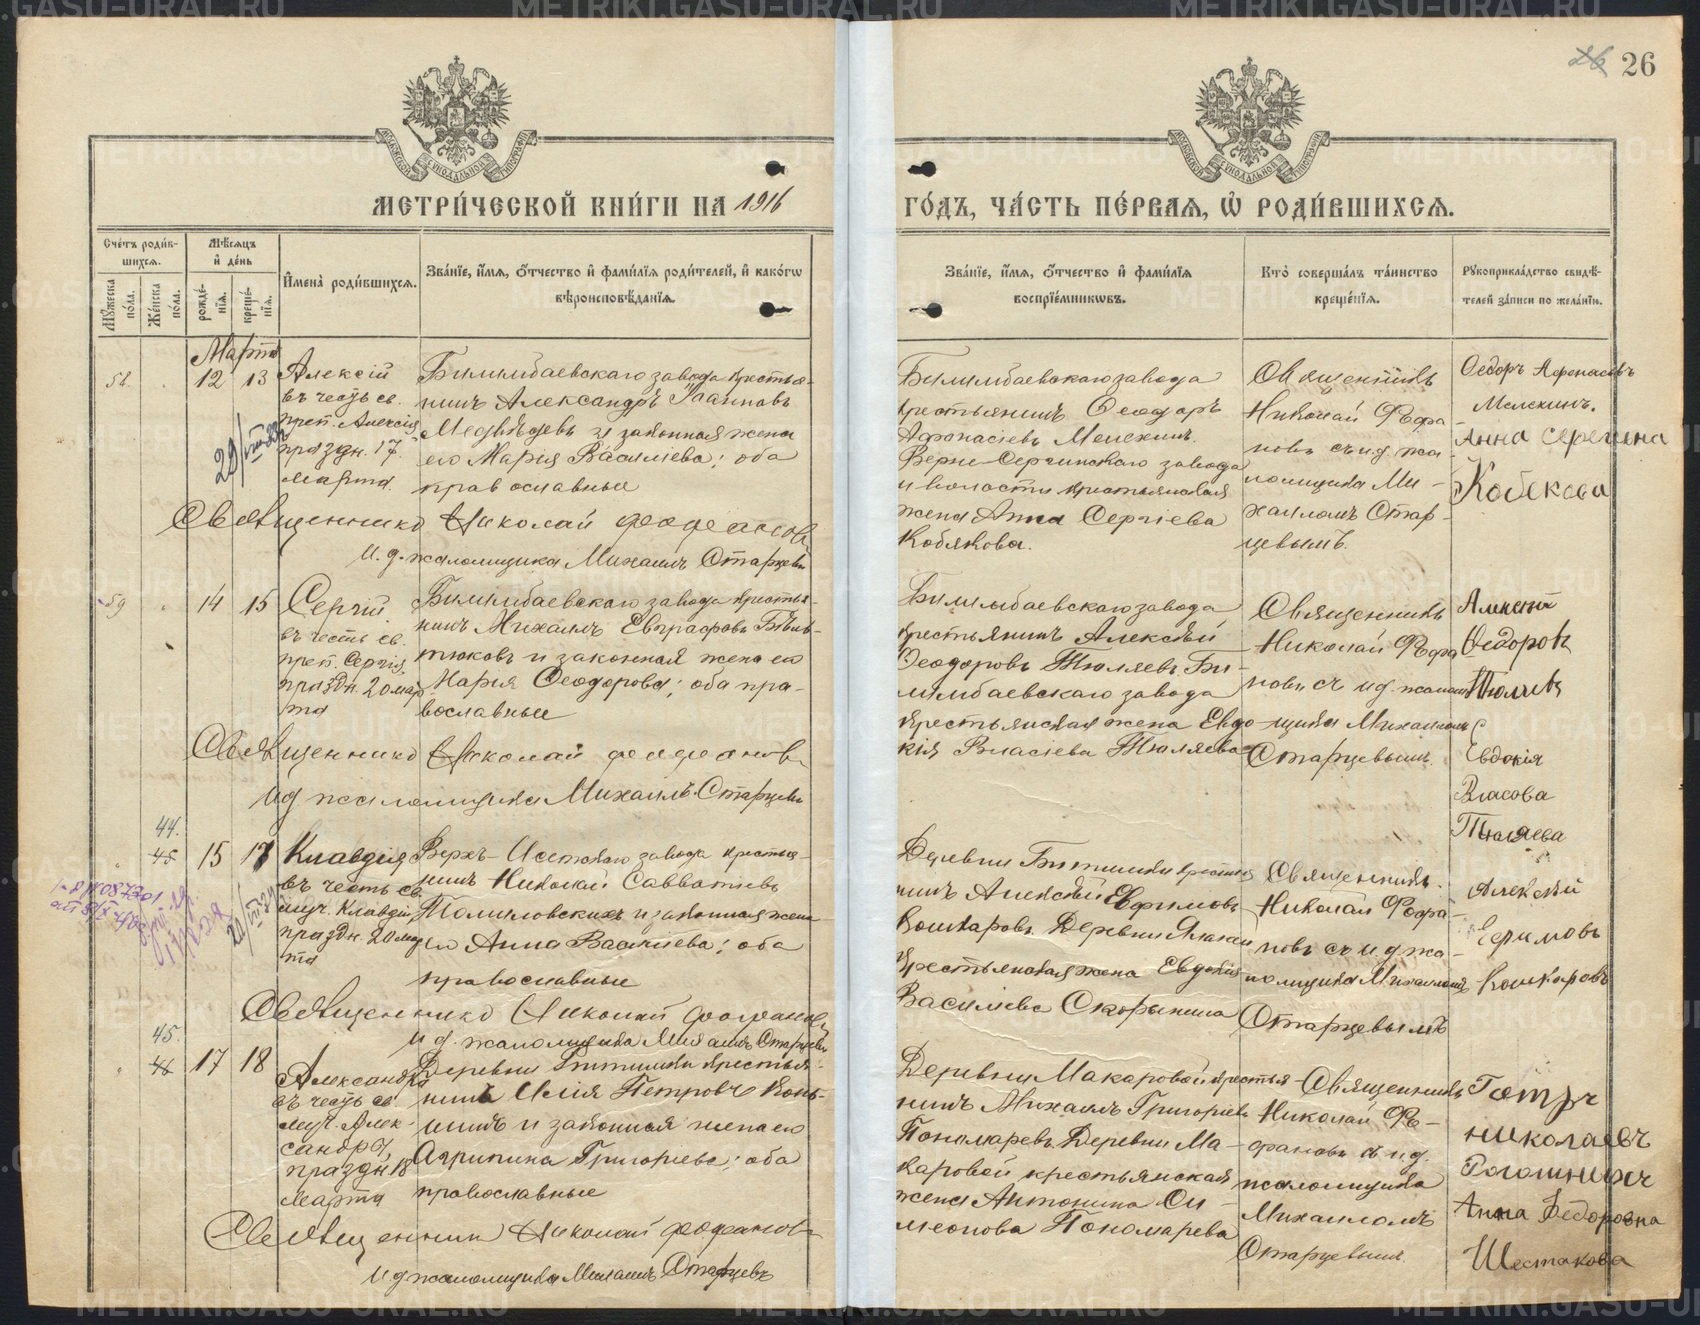 26
МЕТРИ́ЧЕСКОЙ КНИ́ГИ НА 1916
ГО́ДЪ, ЧА́СТЬ ПЕ́РВАЯ, Ѡ РОДИ́ВШИХСЯ.
Сче́тъ роди́в-
шихся.
Му́жеска по́ла.
Же́нска по́ла.
Мѣ́сяцъ
и де́нь
рожде́-
нїя.
креще́-
нїя.
Имена̀ роди́вшихся.
Зва́нїе, и́мя, о́тчество и фами́лїя роди́телей, и како́гѡ
вѣроисповѣ́данїя.
Зва́нїе, и́мя, о́тчество и фами́лїя
воспрїе́мникѡвъ.
Кто̀ соверша́лъ та́инство
креще́нїя.
Рукоприкла́дство свидѣ́-
телей за́писи по жела́нїю.
Марта
58. 12 13
Алексій
въ честь св.
преп. Алексія
праздн. 17
марта.
Билимбаевскаго завода крестья-
нинъ Александръ Іоанновъ
Медвѣдевъ и законная жена
его Марія Васильева; оба
православные
Билимбаевскаго завода
крестьянинъ Ѳеодоръ
Афанасіевъ Мелехинъ.
Верхне-Сергинскаго завода
и волости крестьянская
жена Анна Сергіева
Кобякова.
Священникъ
Николай Ѳеофа-
новъ съ и.д. пса-
ломщика Ми-
хаиломъ Стар-
цевымъ.
Ѳедоръ Афонасьевъ
Мелехинъ.
Анна Сергеена
Кобекова
Священникъ Николай Феофановъ
И. д. псаломщика Михаилъ Старцевъ
59 14 15
Сергій
въ честь св.
преп. Сергія
праздн. 20 мар-
та
Билимбаевскаго завода крестья-
нинъ Михаилъ Евграфовъ
и законная жена его
Марія Ѳеодорова; оба пра-
вославные
Билимбаевскаго завода
крестьянинъ Алексѣй
Ѳеодоровъ Тюляевъ. Би-
лимбаевскаго завода
крестьянская жена Евдо-
кія Власіева Тюляева
Священникъ
Николай Ѳеофа
новъ съ и.д. псалом-
щика Михаиломъ
Старцевымъ.
Алексей
Ѳедоровъ
Тюляевъ
Евдокія
Власова
Тюляева
Священникъ Николай Феофановъ
И д псаломщика Михаилъ Старцевъ
44.
45 15 17
Клавдія
въ честь св.
муч. Клавдіи
праздн. 20 мар-
та
Верхъ-Исетскаго завода крестья-
нинъ Николай Савватіевъ
Томиловскихъ и законная жена
его Анна Васильева; оба
православные
Деревни Битимки крестья
нинъ Алексѣй Ефимовъ
Кошкаровъ. Деревни
крестьянская жена Евдокія
Василіева Скорынина
Священникъ
Николай Ѳеофа-
новъ съ и.д. пса-
ломщика Михаиломъ
Старцевымъ
Алексѣй
Ефимовъ
Кошкаровъ
Священникъ Николай Феофановъ
И д. псаломщика Михаилъ Старцевъ
45.
46 17 18
Александра
въ честь св.
муч. Алек-
сандры,
праздн 18
марта
Деревни Битимки крестья-
нинъ Илія Петровъ Конь-
шинъ и законная жена его
Агрипина Григорьева; оба
православные
Деревни Макаровой крестья-
нинъ Михаилъ Григорьевъ
Пономаревъ. Деревни Ма-
каровой крестьянская
жена Антонина Си-
меонова Пономарева
Священникъ
Николай Ѳе-
офановъ съ и.д.
псаломщика
Михаиломъ
Старцевымъ
Петръ
Николаевъ
Анна Федоровна
Шестакова
Священникъ Николай Феофановъ
И д псаломщика Михаилъ Старцевъ
METRIKI.GASU-URAL.RU